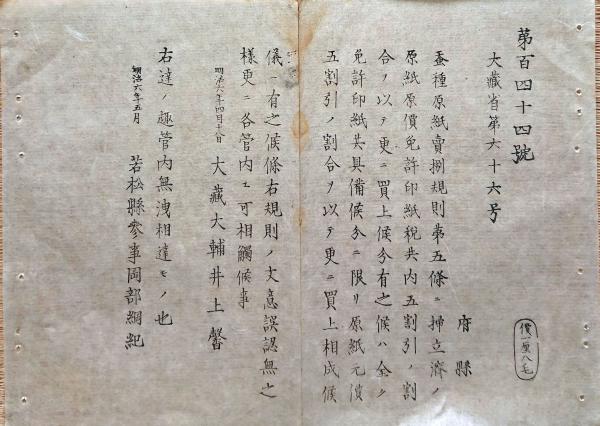 第百四十四號
大藏省第六十六号
府縣
蚕種原紙賣捌規則第五條ニ掃立濟ノ
原紙原價免許印紙税共内五割引ノ割
合ヲ以テ更ニ買上候分有之候ハ全ク
免許印紙共具備候分ニ限リ原紙元價
五割引ノ割合ヲ以テ更ニ買上相成候
儀ニ有之候條右規則ノ文意誤認無之
様更ニ各管内エ可相觸候事
明治六年四月十八日 大藏大輔井上馨
右達ノ趣管内無洩相達モノ也
明治六年五月
若松縣參事岡部綱紀
價一厘八毛